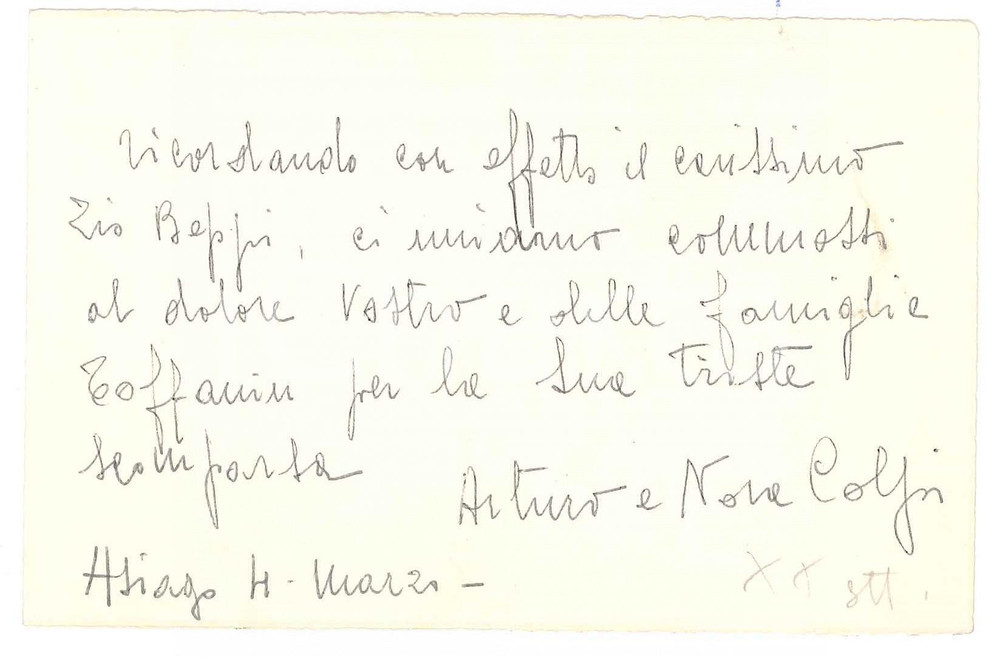 ricordando con affetto il carissimo
Zio Beppi, ci uniamo commossi
al dolore Vostro e delle famiglie
Toffanin per la Sua triste
scomparsa
Arturo e Nora Colpi
Asiago 4 - Marzo -
XX ott.